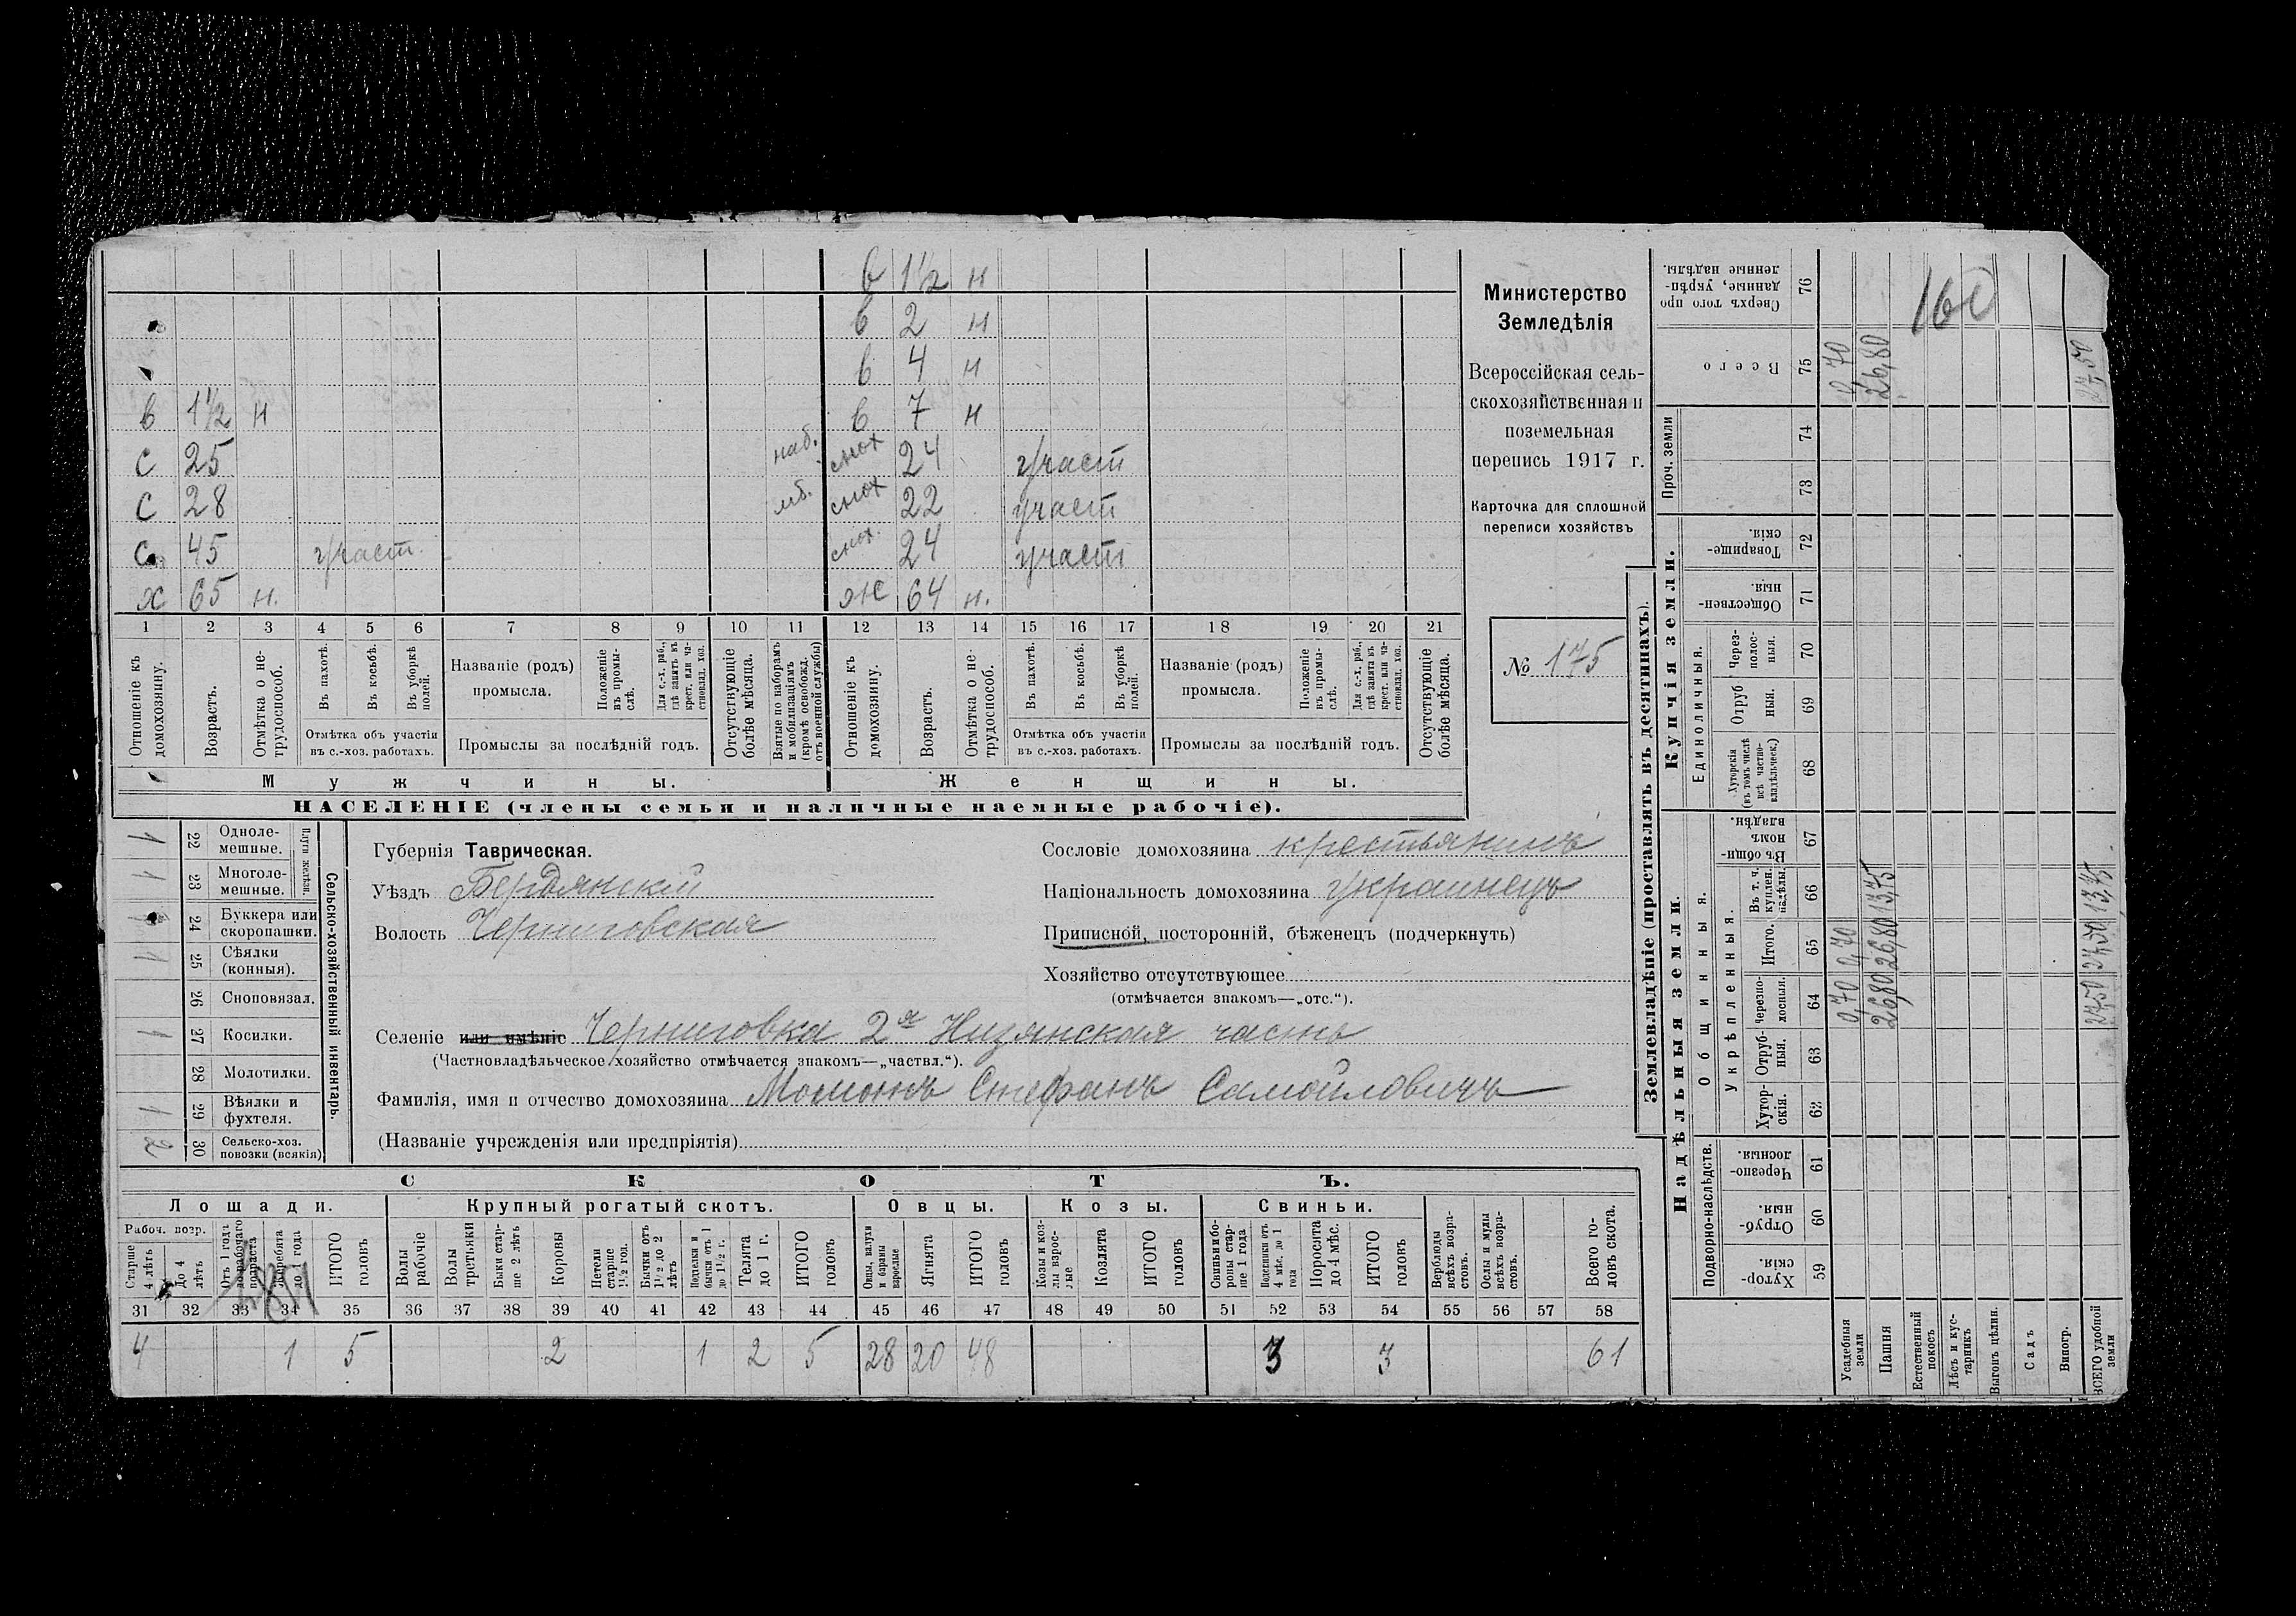 в 1½ н
в 2 н
в 4 н
в 1½ н в 7 н
с 25 наб. снох 24 участ
с 28 мб. снох 22 участ
с 45 участ. снох. 24 участ
х 65 н. ж 64 н.
1 2 3 4 5 6 7 8 9 10 11 12 13 14 15 16 17 18 19 20 21
Отношеніе къ домохозяину.
Возрастъ.
Отмѣтка о не-трудоспособ.
Въ пахотѣ.
Въ косьбѣ.
Въ уборкѣ полей.
Отмѣтка объ участіи въ с.-хоз. работахъ.
Названіе (родъ) промысла.
Положеніе въ промы-слѣ.
Для с.-х. раб., гдѣ занятъ въ крест. или ча-стновлад. хоз.
Промыслы за послѣдній годъ.
Отсутствующіе болѣе мѣсяца.
Взятые по наборамъ и мобилизаціямъ (кромѣ освобожд. отъ военной службы)
Отношеніе къ домохозяину.
Возрастъ.
Отмѣтка о не-трудоспособ.
Въ пахотѣ.
Въ косьбѣ.
Въ уборкѣ полей.
Отмѣтка объ участіи въ с.-хоз. работахъ.
Названіе (родъ) промысла.
Положеніе въ промы-слѣ.
Для с.-х. раб., гдѣ занята въ крест. или ча-стновлад. хоз.
Промыслы за послѣдній годъ.
Отсутствующіе болѣе мѣсяца.
Мужчины. Женщины.
НАСЕЛЕНІЕ (члены семьи и наличные наемные рабочіе).
Министерство
Земледѣлія
Всероссійская сель-
скохозяйственная и
поземельная
перепись 1917 г.
Карточка для сплошной
переписи хозяйствъ
№ 175
Сельско-хозяйственный инвентарь.
Плуги желѣзн.
1 22 Одноле-мешные.
1 23 Многоле-мешные.
24 Буккера или скоропашки.
1 25 Сѣялки (конныя).
26 Сноповязал.
1 27 Косилки.
28 Молотилки.
1 29 Вѣялки и фухтеля.
2 30 Сельско-хоз. повозки (всякія)
Губернія Таврическая.
Уѣздъ Бердянскій
Волость Черниговская
Сословіе домохозяина крестьянинъ
Національность домохозяина украинецъ
Приписной, посторонній, бѣженецъ (подчеркнуть)
Хозяйство отсутствующее
(отмѣчается знакомъ—„отс.“).
Селеніе или имѣніе Черниговка 2я Низянская часть
(Частновладѣльческое хозяйство отмѣчается знакомъ—„частвл.“).
Фамилія, имя и отчество домохозяина Момотъ Стефанъ Самойловичъ
(Названіе учрежденія или предпріятія)
СКОТЪ.
Лошади. Крупный рогатый скотъ. Овцы. Козы. Свиньи.
Рабоч. возр.
Старше 4 лѣтъ
До 4 лѣтъ
Отъ 1 года до рабочаго возраста
Жеребята до 1 года
ИТОГО головъ
Волы рабочіе
Волы третьяки
Быки стар-ше 2 лѣтъ
Коровы
Нетели старше 1½ год.
Бычки отъ 1½ до 2 лѣтъ
Подтелки и бычки отъ 1 до 1½ г.
Телята до 1 г.
ИТОГО головъ
Овцы, валухи и бараны взрослые
Ягнята
ИТОГО головъ
Козы и коз-лы взрос-лые
Козлята
ИТОГО головъ
Свиньи и бо-ровы стар-ше 1 года
Подсвинки отъ 4 мѣс. до 1 года
Поросята до 4 мѣс.
ИТОГО головъ
Верблюды всѣхъ возра-стовъ.
Ослы и мулы всѣхъ возра-стовъ.
Всего го-ловъ скота.
31 32 33 34 35 36 37 38 39 40 41 42 43 44 45 46 47 48 49 50 51 52 53 54 55 56 57 58
4 1 5 2 1 2 5 28 20 48 3 3 61
Землевладѣніе (проставлять въ десятинахъ).
Надѣльныя земли. Купчія земли. Проч. земли
Подворно-наслѣдств.
Общинныя.
Укрѣпленныя.
Единоличныя.
Хутор-скія. 59
Отруб-ныя. 60
Черезпо-лосныя. 61
Хутор-скія. 62
Отруб-ныя. 63
Черезпо-лосныя. 64
Итого. 65
Въ т. ч. куплен. надѣлы. 66
Въ общи-номъ владѣн. 67
Хуторскія (въ томъ числѣ всѣ частно-владѣльческ.) 68
Отруб ныя. 69
Через-полос-ныя. 70
Обществен-ныя. 71
Товарище-скія. 72
73
74
Всего 75
Сверхъ того про данные, укрѣп-ленные надѣлы. 76
Усадебныя земли 0,70 0,70 0,70
Пашня 26,80 26,80 13,75 26,80
Естественный покосъ
Лѣсъ и кус-тарникъ
Выгонъ цѣлин.
Садъ
Виногр.
ВСЕГО удобной земли 27,50 27,50 13,75 27,50